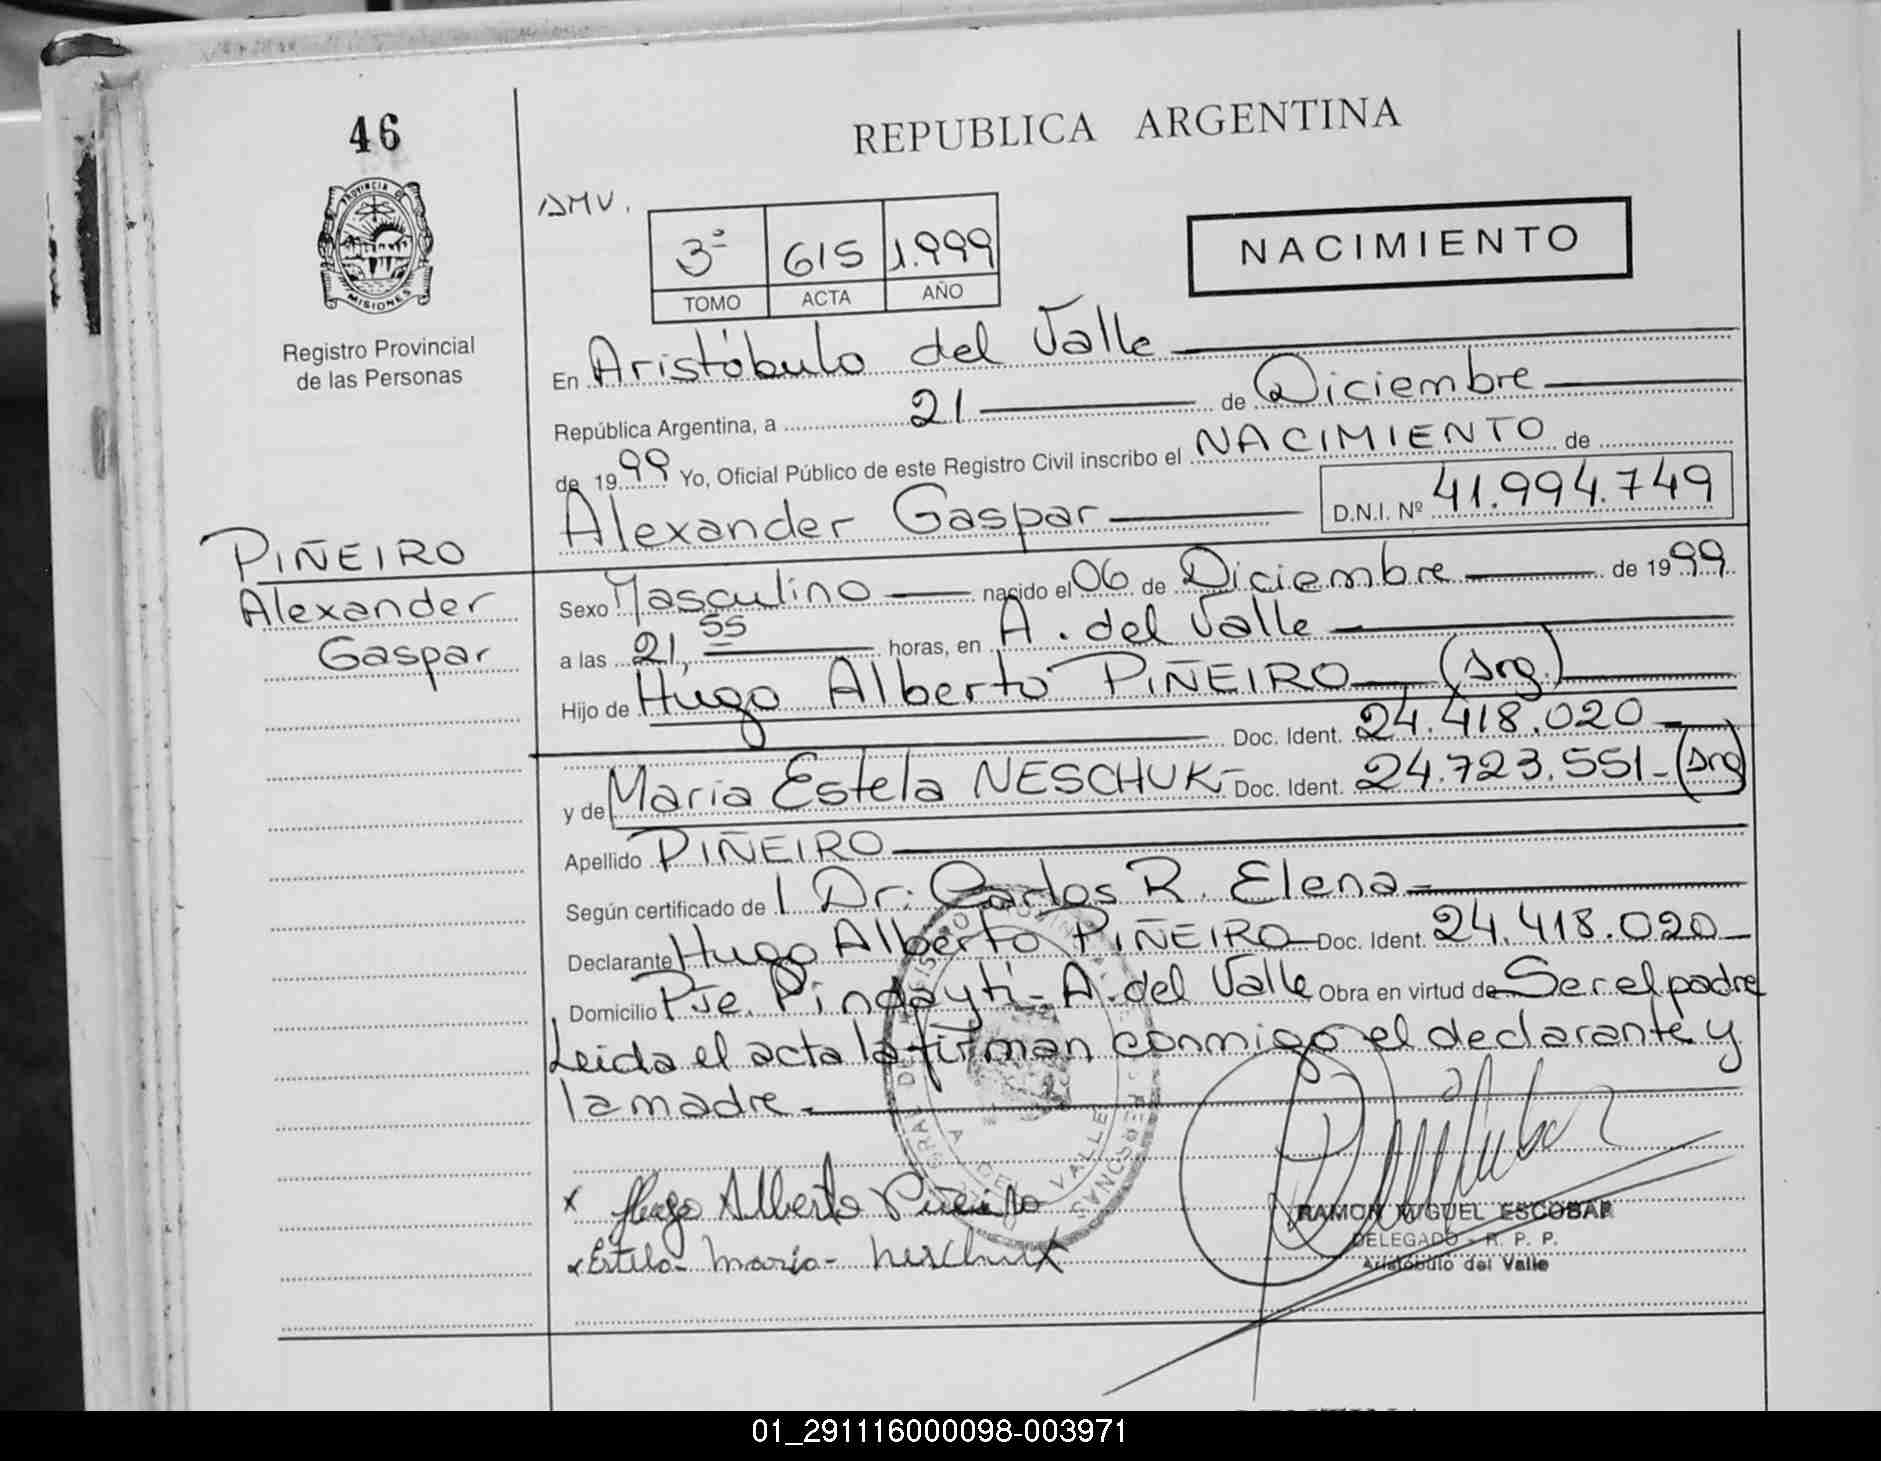 46
REPUBLICA ARGENTINA
PROVINCIA DE
MISIONES
Registro Provincial
de las Personas
AMV.
3º 615 1.999
TOMO ACTA AÑO
NACIMIENTO
En Aristóbulo del Valle
República Argentina, a 21 de Diciembre
de 1999 Yo, Oficial Público de este Registro Civil inscribo el NACIMIENTO de
Alexander Gaspar D.N.I. Nº 41.994.749
PIÑEIRO
Alexander
Gaspar
Sexo Masculino nacido el 06 de Diciembre de 1999
a las 21,55 horas, en A. del Valle
Hijo de Hugo Alberto PIÑEIRO (Arg.)
Doc. Ident. 24.418.020
y de Maria Estela NESCHUK- Doc. Ident. 24.723.551-(Arg)
Apellido PIÑEIRO
Según certificado de Dr. Carlos R. Elena
Declarante Hugo Alberto PIÑEIRO Doc. Ident. 24.418.020
Domicilio Pje. Pindayti- A. del Valle Obra en virtud de Ser el padre
Leida el acta la firman conmigo el declarante y
la madre.
x Hugo Alberto Piñeiro
x Estela- Maria- Neschuk
RAMON MIGUEL ESCOBAR
DELEGADO - R. P. P.
Aristóbulo del Valle
01_291116000098-003971